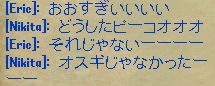 [Eric]: おおすぎいいいい
[Nikita]: どうしたピーコオオオ
[Eric]: それじゃないーーーー
[Nikita]: オスギじゃなかったー
ーー